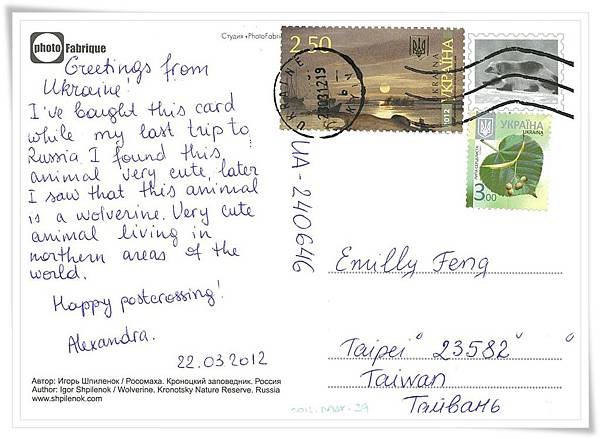 photo Fabrique
Студия «PhotoFabri
Greetings from
Ukraine!
I've bought this card
while my last trip to
Russia I found this
animal very cute, later
I saw that this animal
is a wolverine. Very cute
animal living in
northern areas of the
world.
Happy postcrossing!
Alexandra.
22.03 2012
Автор: Игорь Шпиленок / Росомаха. Кроноцкий заповедник. Россия
Author: Igor Shpilenok / Wolverine, Kronotsky Nature Reserve, Russia
www.shpilenok.com
UKRAINE
KYIV
2.50
УКРАЇНА
UKRAINA
2012
УКРАЇНА
UKRAINE
3.00
UA-240646
Emilly Feng
Taipei 23582
Taiwan
Тайвань
2012. Mar. 29